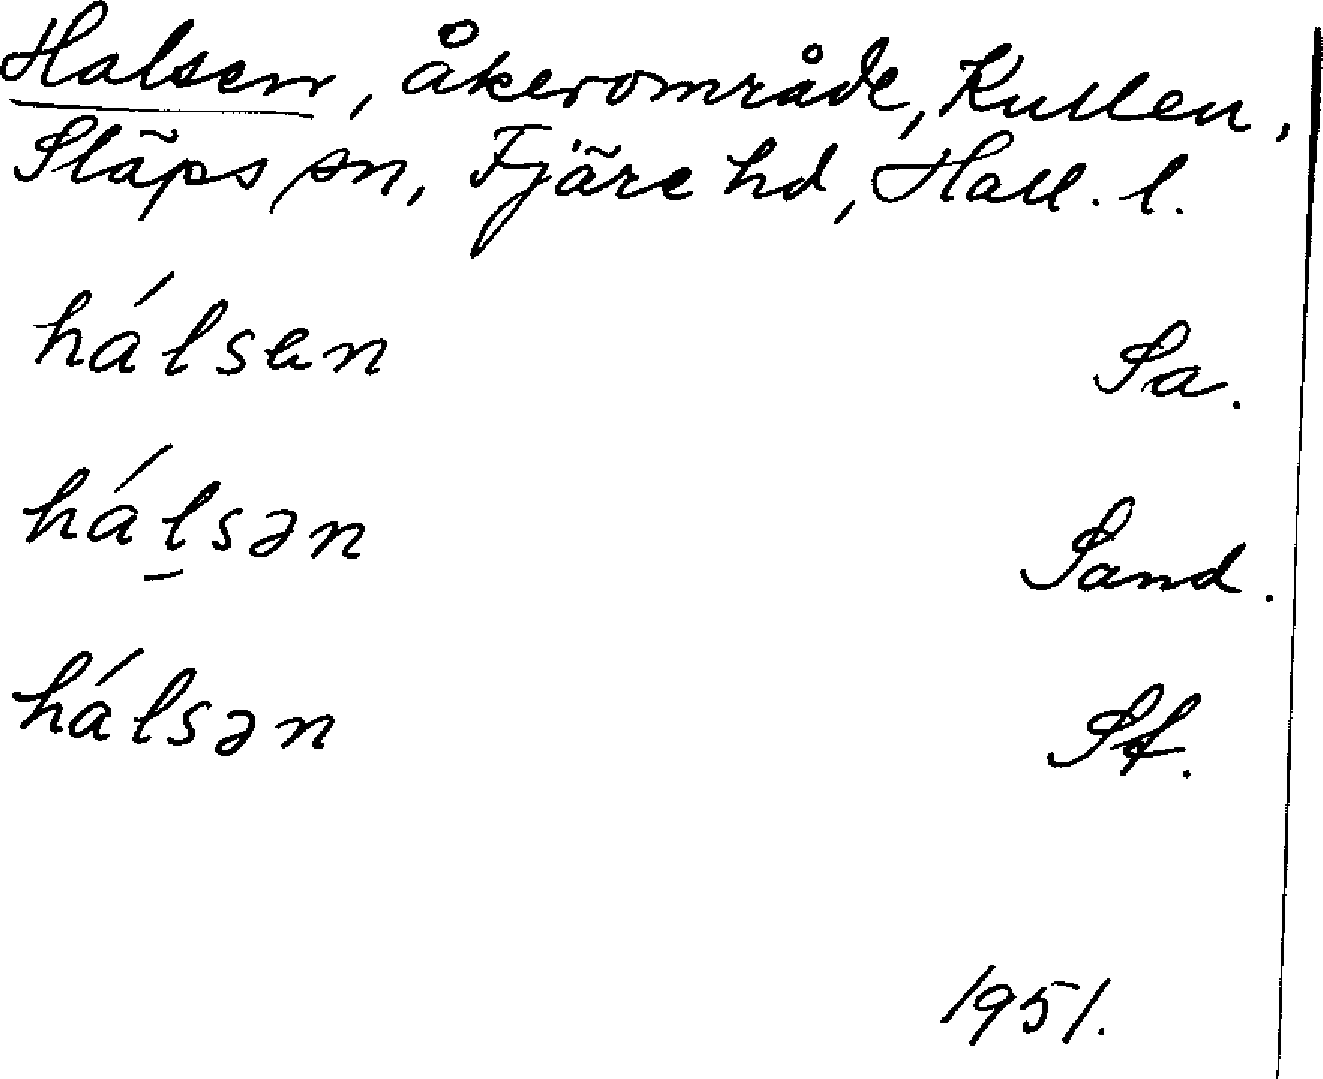 Halsen, åkerområde, Kullen,
Släps sn, Fjäre hd, Hall. l.
hálsen Sa.
hál̠sən Sand.
hálsən Sf.
1951.